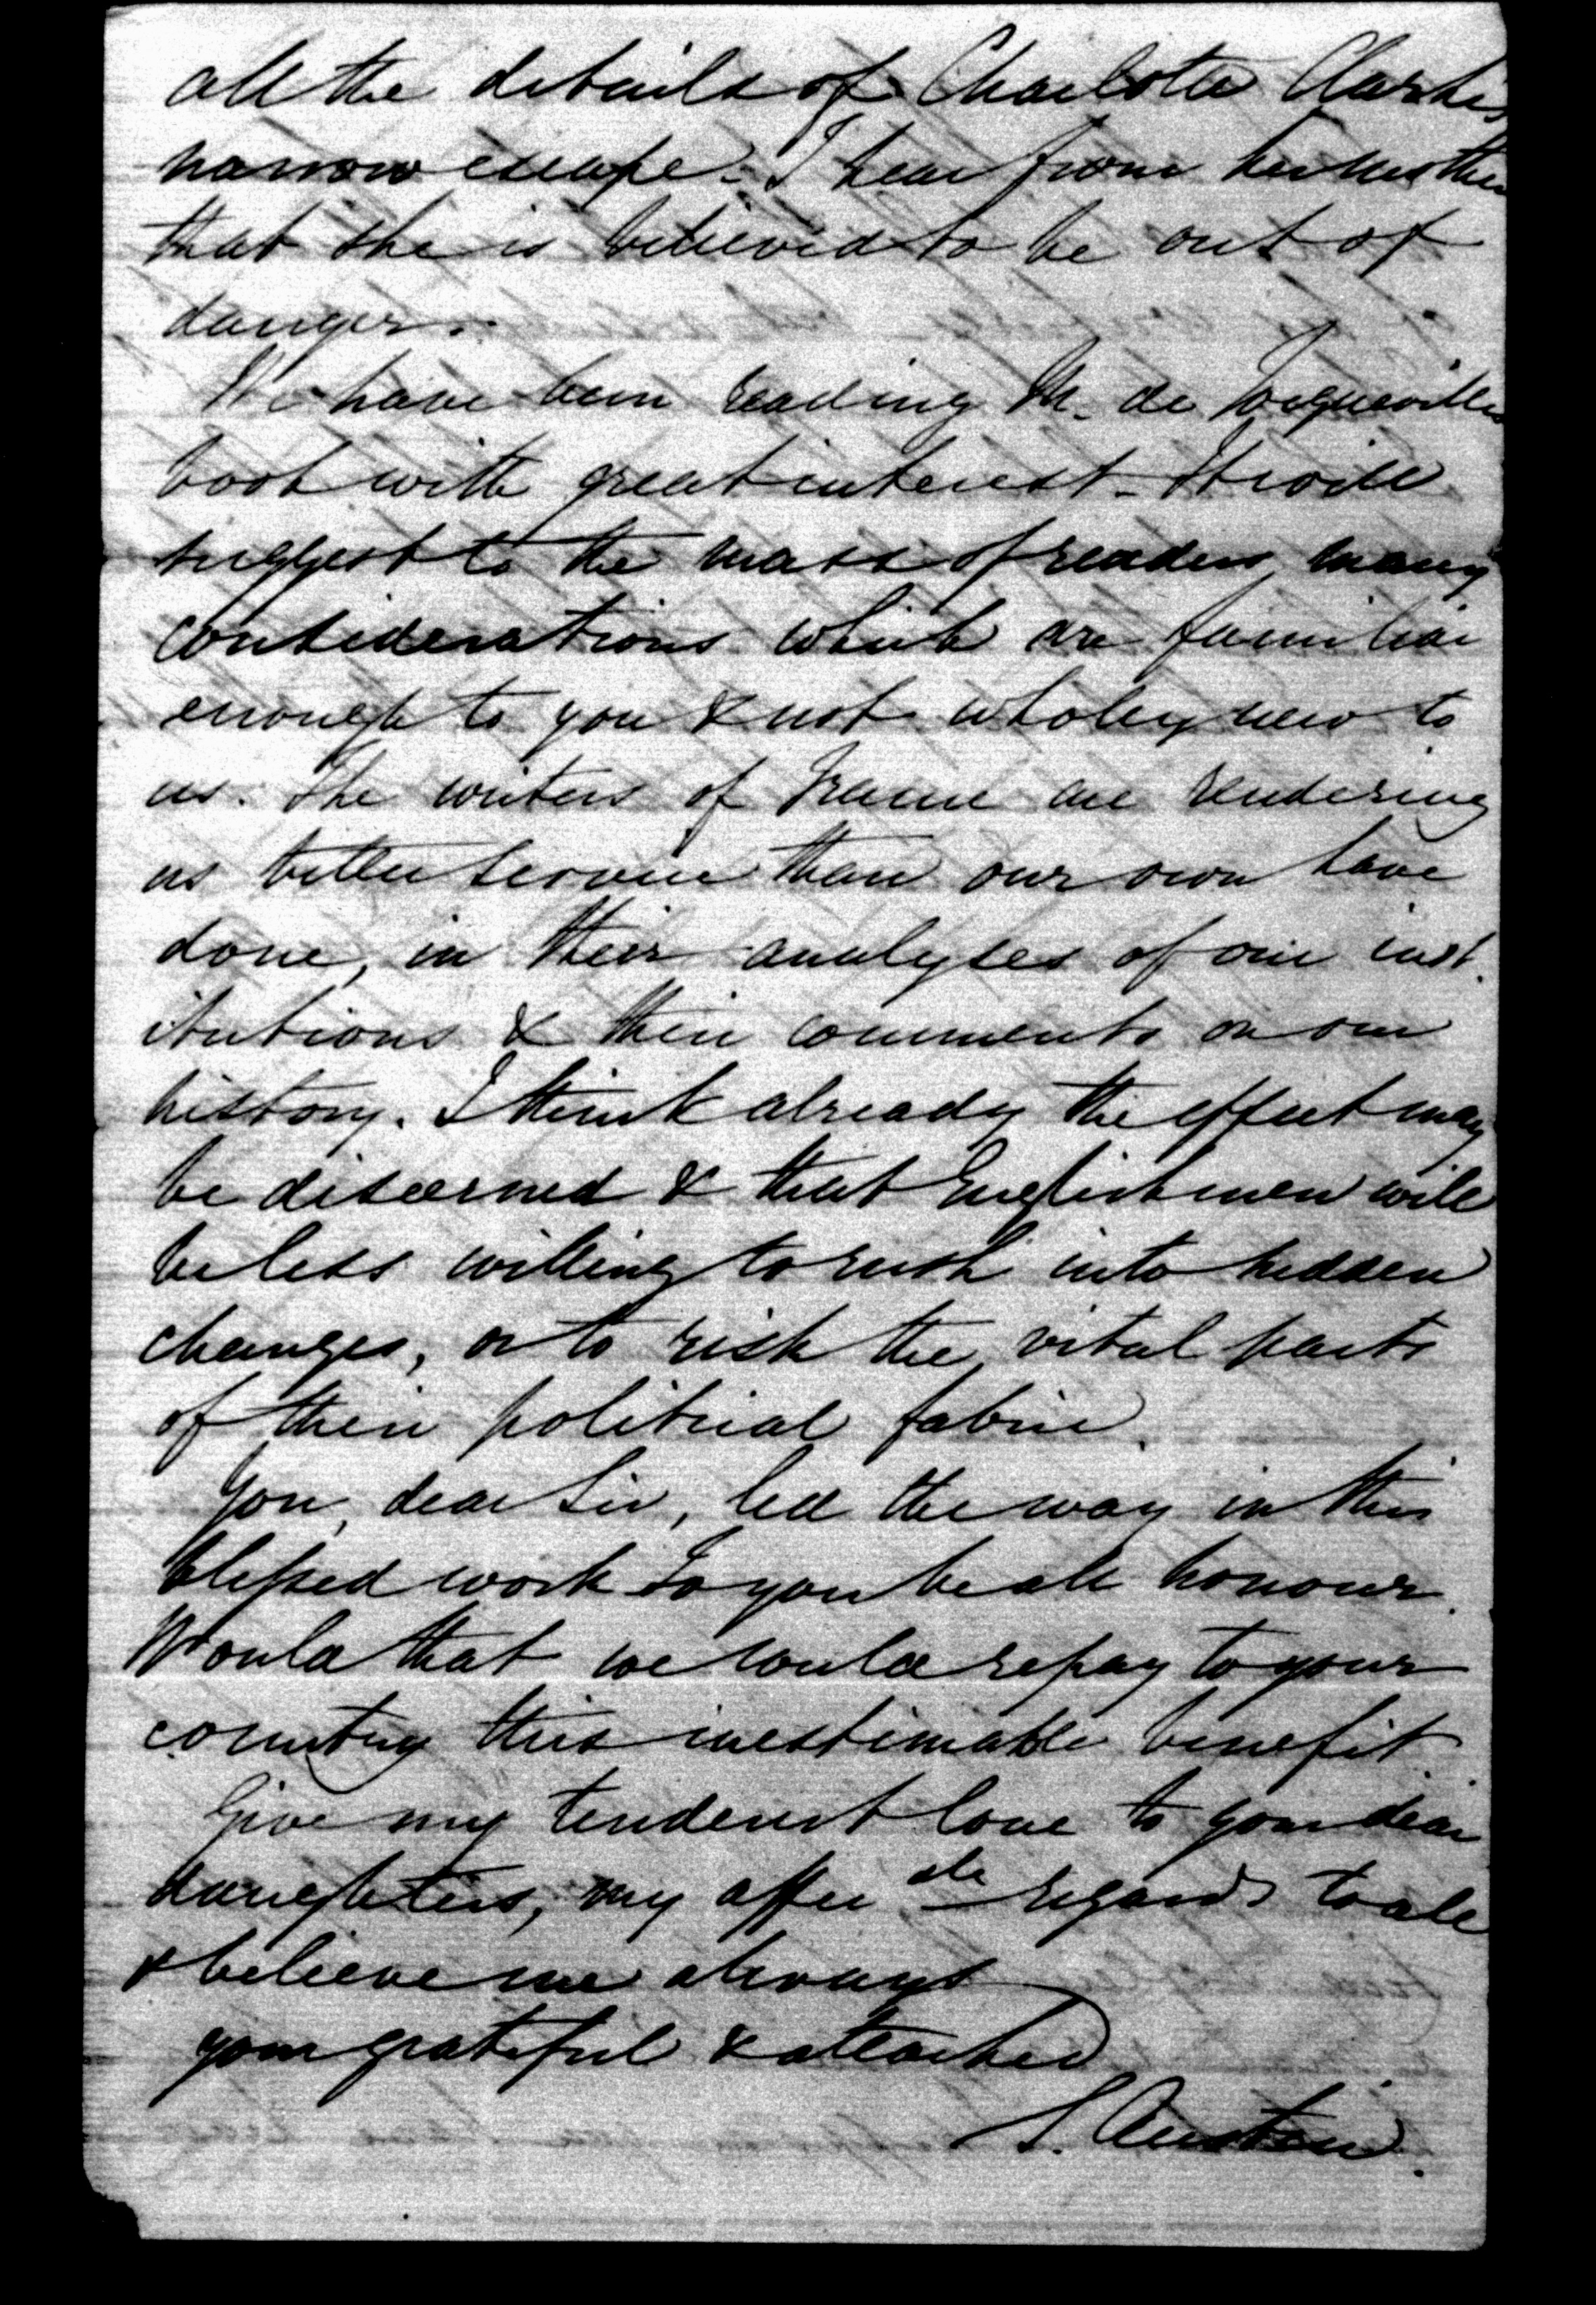 all the details of Charlotte Clarke's
narrow escape. I hear from her mother
that she is believed to be out of
danger.
We have been reading M. de Tocqueville's
book with great interest. It will
suggest to the mass of readers many
considerations which are familiar
enough to you & not wholey new to
us. The writers of France are rendering
us better service than our own have
done, in their analyses of our inst.
itutions & their comments on our
history. I think already the effect may
be discerned & that Englishmen will
be less willing to rush into sudden
changes, or to risk the vital parts
of their political fabric.
You, dear Sir, led the way in this
blessed work To you be all honour.
Would that we could repay to your
country this inestimable benefit.
Give my tenderest love to your dear
daughters, my affec ate regards to all
& believe me always
your grateful & attached
S. Austin.